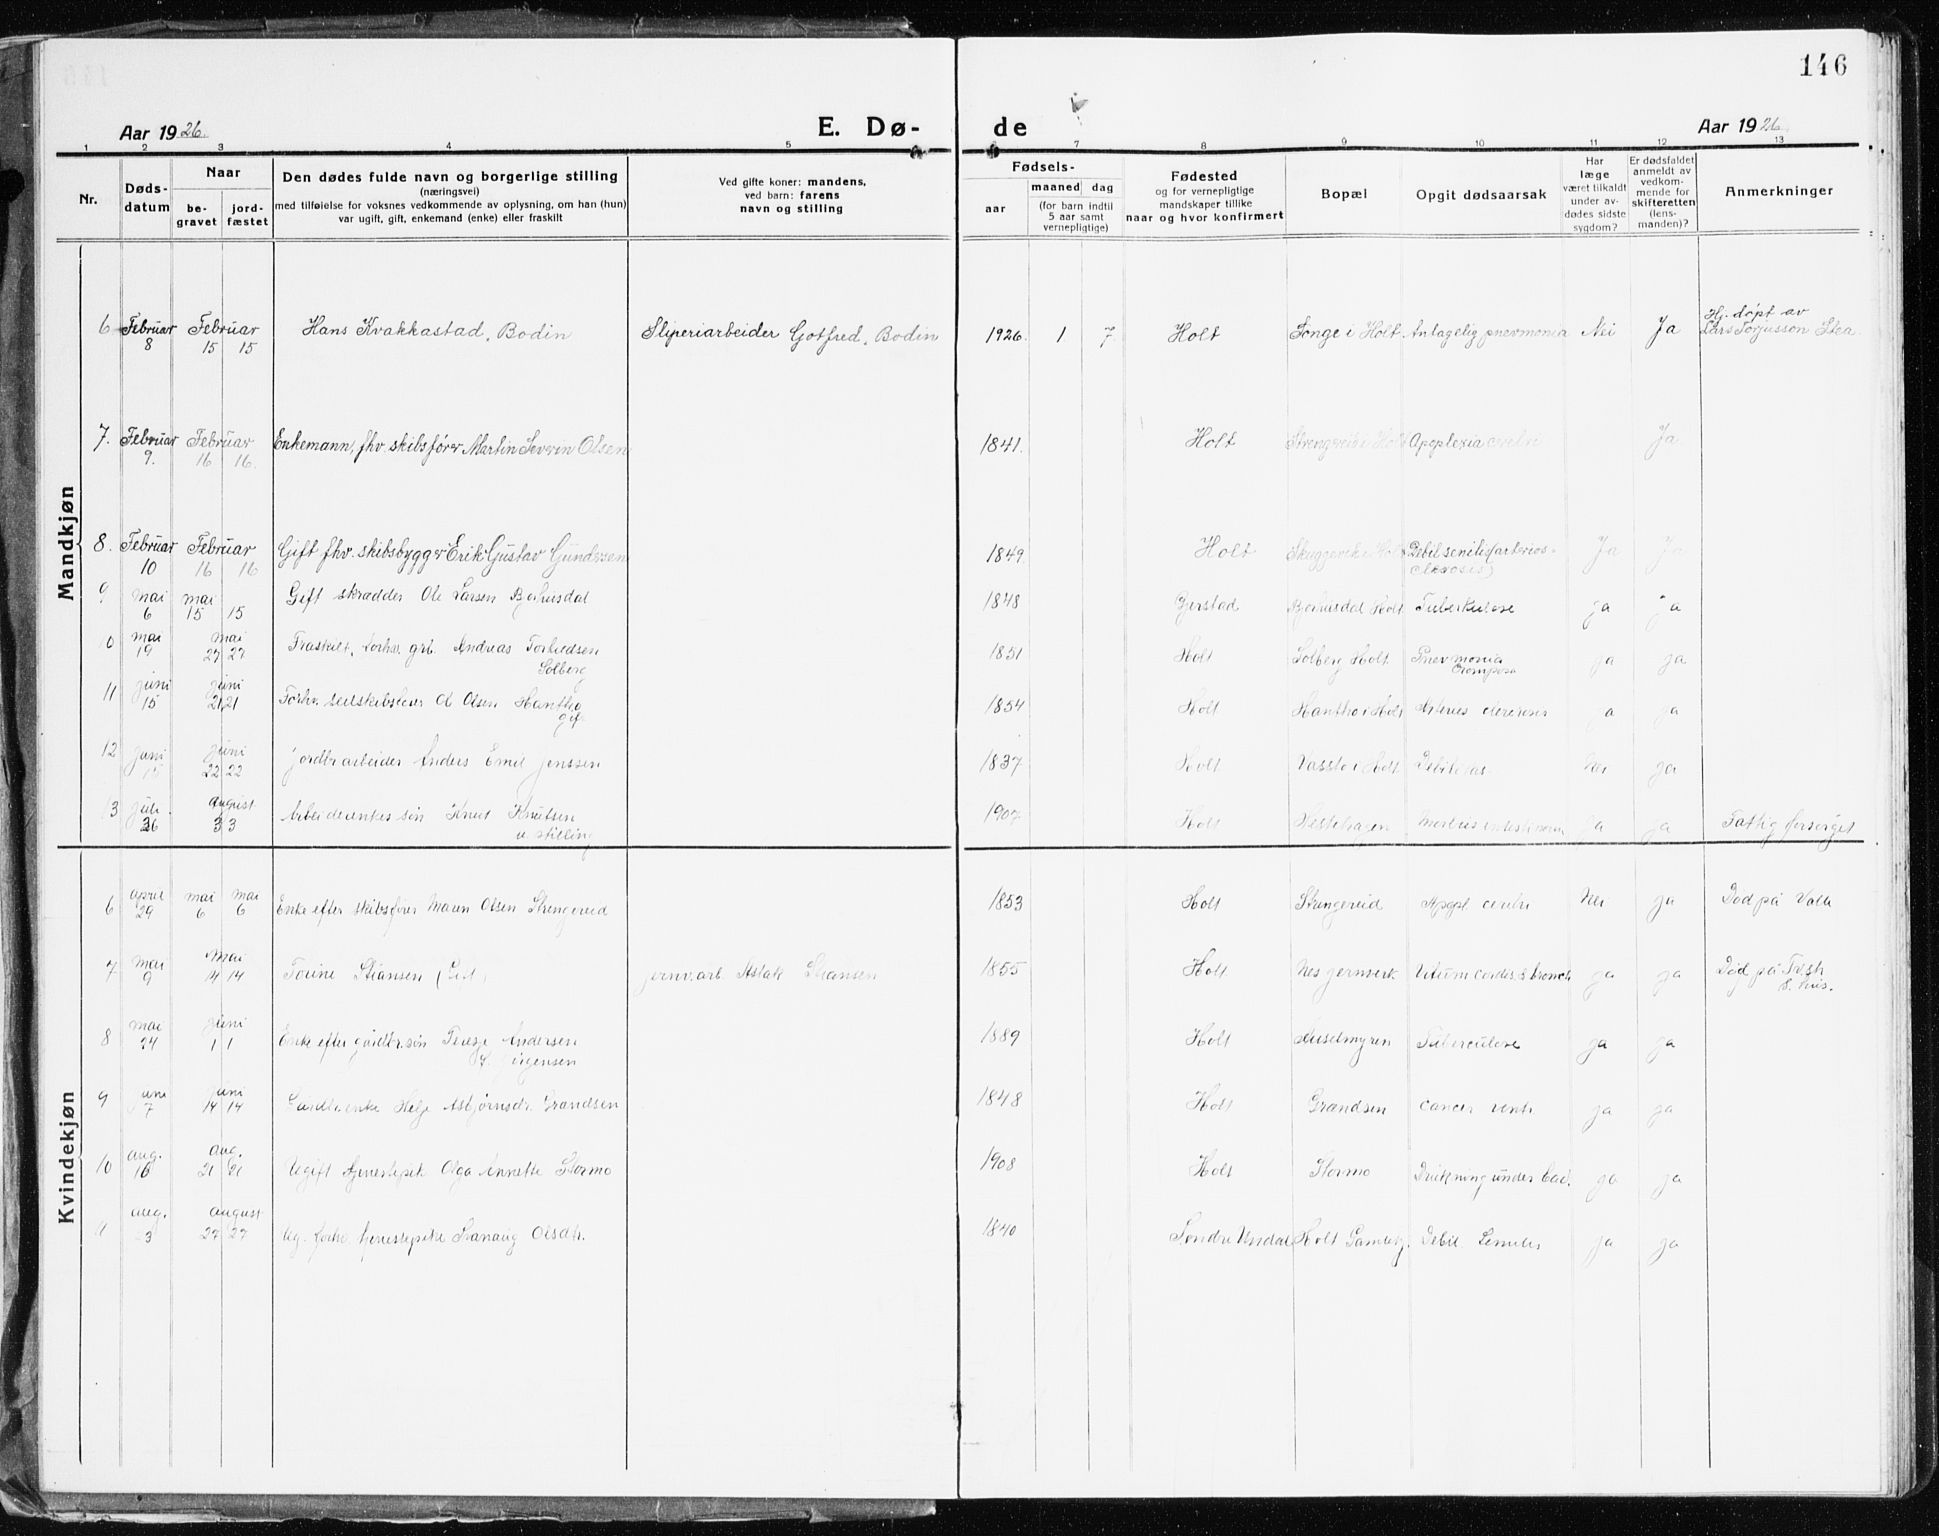 146
Aar 1926. E. Dø- de Aar 1926.
1 2 3 4 5 6 7 8 9 10 11 12 13
Nr.
Døds-
datum
Naar
be-
gravet
jord-
fæstet
Den dødes fulde navn og borgerlige stilling
(næringsvei)
med tilføielse for voksnes vedkommende av oplysning, om han (hun)
var ugift, gift, enkemand (enke) eller fraskilt
Ved gifte koner: mandens,
ved barn: farens
navn og stilling
Fødsels-
aar
maaned dag
(for barn indtil
5 aar samt
vernepligtige)
Fødested
og for vernepligtige
mandskaper tillike
naar og hvor konfirmert
Bopæl
Opgit dødsaarsak
Har
læge
været tilkaldt
under av-
dødes sidste
sygdom?
Er dødsfaldet
anmeldt av
vedkom-
mende for
skifteretten
(lens-
manden)?
Anmerkninger
Mandkjøn
6 Februar Februar Hans Kvakkastad, Bodin Sliperiarbeider Gotfred, Bodin 1926. 1. 7. Holt Songe i Holt. Antagelig pnevmonia Nei Ja Hj. døpt av
8 15 15 Lars Torjusson Stea.
7. Februar Februar Enkemann, fhv. skibsfører Martin Severin Olsen 1841. Holt Strengereid i Holt Apoplexia cerebri Ja
9. 16 16.
8. Februar Februar Gift fhv. skibsbygger Erik Gustav Gundersen 1849. Holt Skuggevik i Holt Debil senilis (arterios-
10 16 16 clerosis) Ja Ja
9 mai mai Gift skrædder Ole Larsen Bjorhusdal 1848 Gjerstad Bjorhusdal Holt Tuberkulose ja ja
6 15 15
10 mai mai Fraskilt, forhv. grb. Andreas 1851 Holt Solberg Holt Pnevmonia ja ja
19 27 27 Solberg
11 juni juni Forhv. Olsen Hantho 1854 Holt Hantho i Holt ja ja
15 21 21 gift
12 juni juni jordbrarbeider Anders Emil Jenssen 1837 Holt Vassto i Holt Debilitas Nei ja
15 22 22
13 juli august Arbeiderenkes søn Knut Knutsen 1907 Holt ja ja Fattig forsørget
26 3 3 u. stilling
Kvindekjøn
6 april mai mai Enke efter skibsfører Maren Olsen Strengereid 1853 Holt Strengereid Apopl. cerebri Nei ja Død på Valle
29 6 6
7 mai mai Torine Stiansen (Gift) jernv.arb. Aslak Stiansen 1855 Holt Nes jernverk Vitium cordis & bronch ja ja Død på Tv.str
9 14 14 s. hus.
8 mai juni Enke efter gårdbr.søn Terese Andersen 1889 Holt Tuberculose ja ja
24 1 1 Jørgensen
9 juni juni Gårdbr.enke Helje Asbjørnsdr. Grandsen 1848 Holt Grandsen cancer ventr ja ja
7 14 14
10 aug. aug. Ugift tjenestepik Olga Annette Stormo 1908 Holt Stormo Drukning under bad. ja ja
16 21 21
11 aug. august Ug. forhv. tjenestepike Olsdtr. 1840 Søndre Undal Holt Gamlehj. Debil. Senilis ja ja
23 27 27